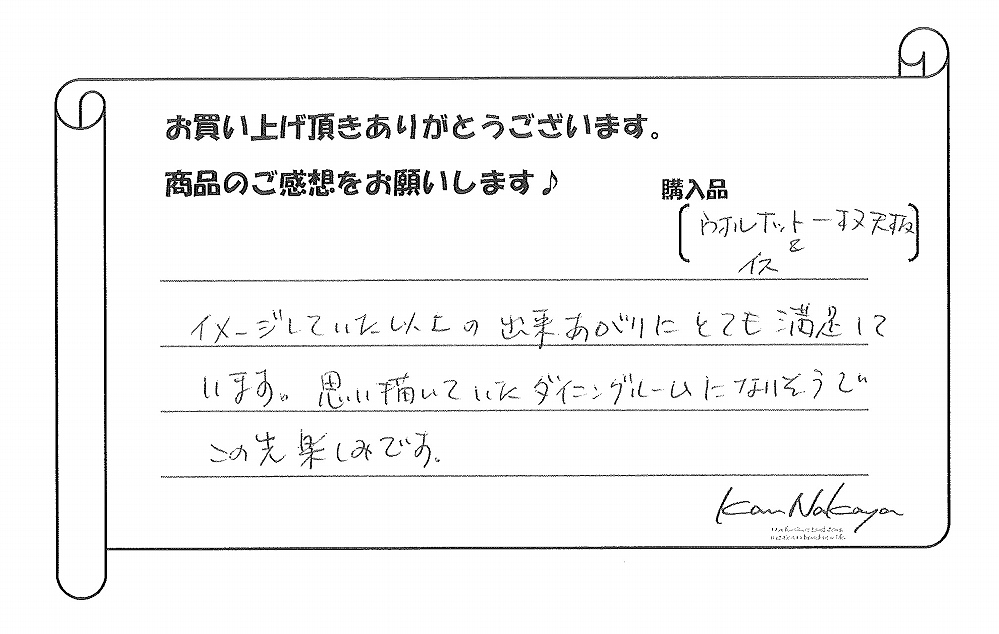 お買い上げ頂きありがとうございます。
商品のご感想をお願いします♪
購入品
ウォルナット一枚天板
&
イス
イメージしていた以上の出来あがりにとても満足して
います。思い描いていたダイニングルームになりそうで
この先楽しみです。
Kan Nakaya